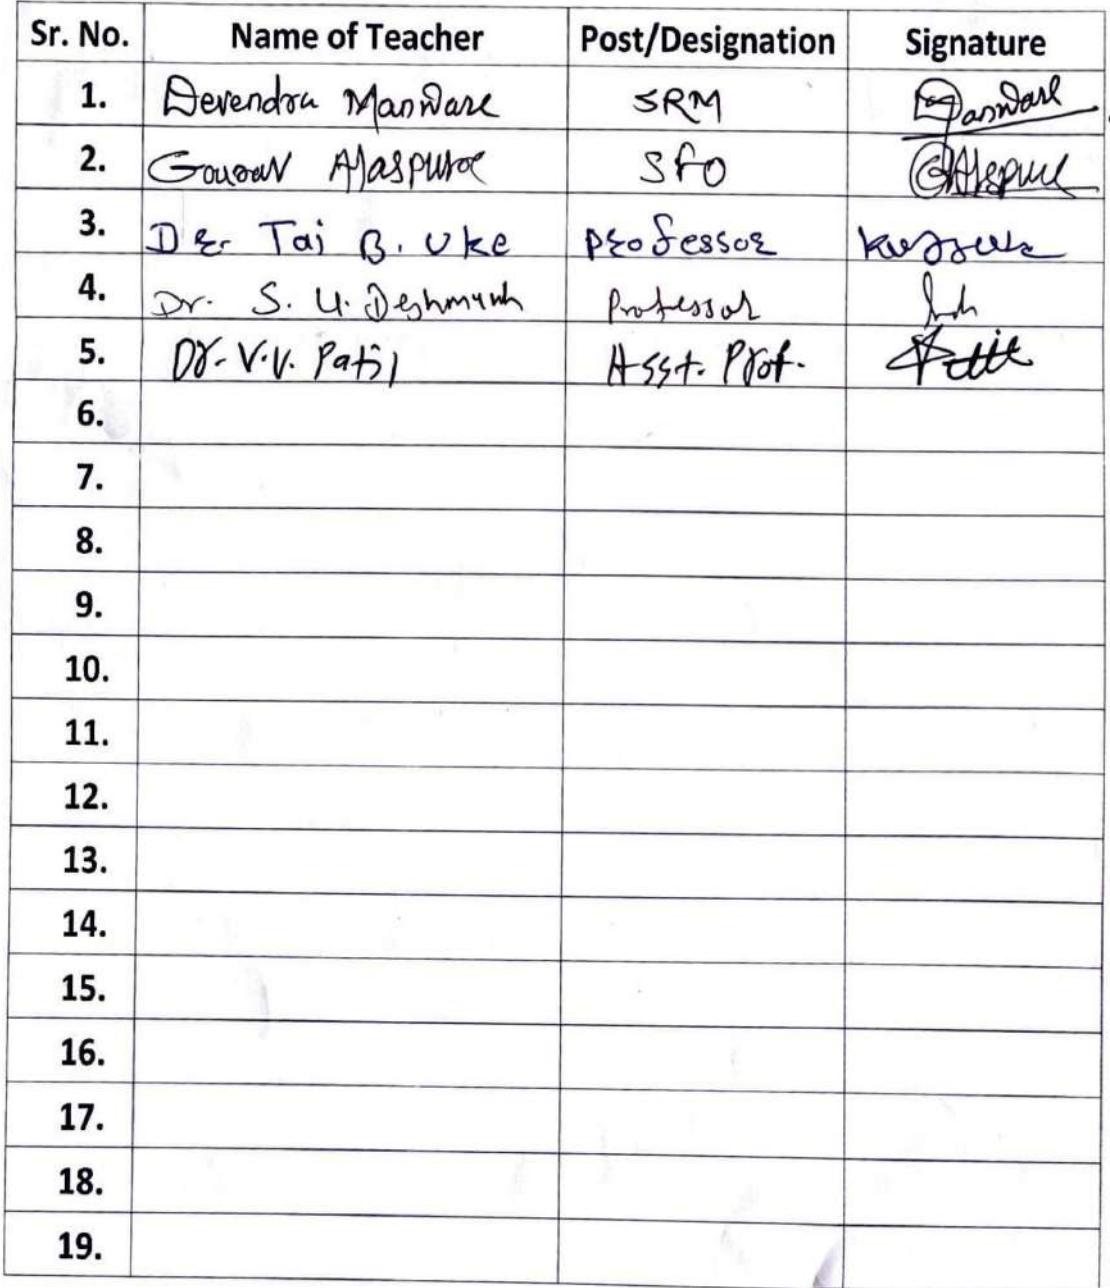 Sr. No. Name of Teacher Post/Designation Signature
1. Devendra Manware SRM Manware
2. Gourav Alaspure SFO GAlaspure
3. Dr. Tai B. Uke Professor
4. Dr. S. U. Deshmukh Professor
5. Dr. V.V. Patil Asst. Prof. Patil
6.
7.
8.
9.
10.
11.
12.
13.
14.
15.
16.
17.
18.
19.